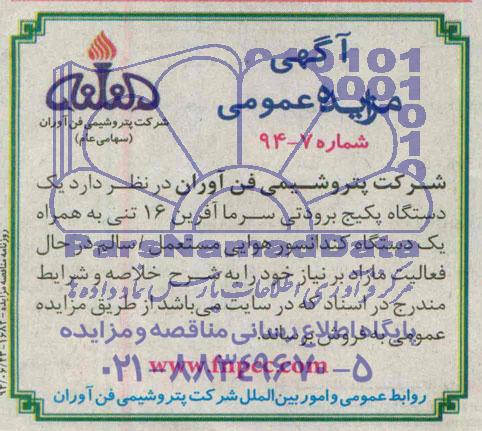 آگهی
مزایده عمومی
شماره ۷-۹۴
شرکت پتروشیمی فن آوران
(سهامی عام)
شرکت پتروشیمی فن آوران در نظر دارد یک
دستگاه پکیج برودتی سرما آفرین ۱۶ تنی به همراه
یک دستگاه کندانسور هوایی مستعمل / سالم در حال
فعالیت مازاد بر نیاز خود را به شرح خلاصه و شرایط
مندرج در اسناد که در سایت می‌باشد از طریق مزایده
عمومی به فروش برساند.
www.fnpcc.com
روابط عمومی و امور بین الملل شرکت پتروشیمی فن آوران
ParsNamadData
مرکز فرآوری اطلاعات پارس نماد داده ها
پایگاه اطلاع رسانی مناقصه و مزایده
۰۲۱-۸۸۳۴۹۶۷۰-۵